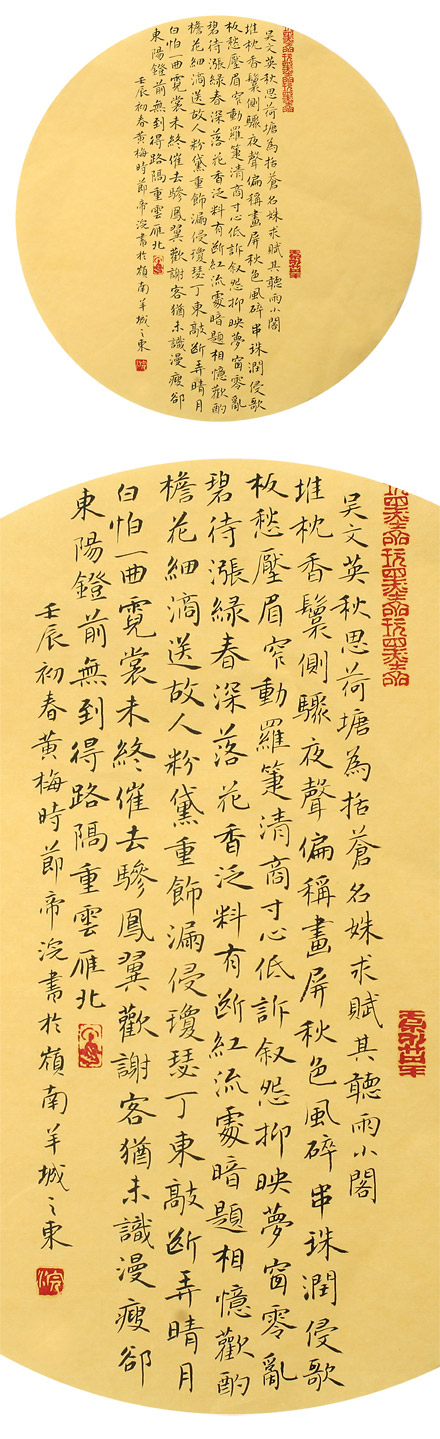 吳文英秋思荷塘為括蒼名姝求賦其聽雨小閣
堆枕香鬟側驟夜聲偏稱畫屏秋色風碎串珠潤侵歌
板愁壓眉窄動羅箑清商寸心低訴叙怨抑映夢窗零亂
碧待漲綠春深落花香泛料有断紅流處暗題相憶歡酌
檐花細滴送故人粉黛重飾漏侵瓊瑟丁東敲断弄晴月
白怕一曲霓裳未終催去驂鳳翼歡謝客猶未識漫瘦郤
東陽鐙前無到得路隔重雲雁北
壬辰初春黃梅時節帝浣書於嶺南羊城之東
吳文英秋思荷塘為括蒼名姝求賦其聽雨小閣
堆枕香鬟側驟夜聲偏稱畫屏秋色風碎串珠潤侵歌
板愁壓眉窄動羅箑清商寸心低訴叙怨抑映夢窗零亂
碧待漲綠春深落花香泛料有断紅流處暗題相憶歡酌
檐花細滴送故人粉黛重飾漏侵瓊瑟丁東敲断弄晴月
白怕一曲霓裳未終催去驂鳳翼歡謝客猶未識漫瘦郤
東陽鐙前無到得路隔重雲雁北
壬辰初春黃梅時節帝浣書於嶺南羊城之東